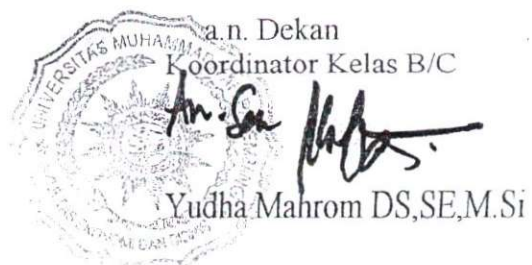 a.n. Dekan
Koordinator Kelas B/C
UNIVERSITAS MUHAMMAD
Yudha Mahrom DS,SE,M.Si